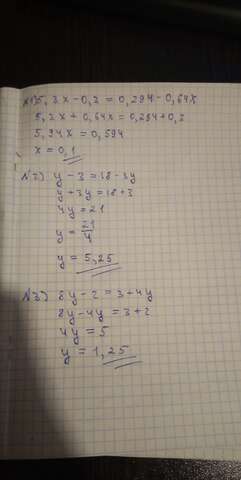 №1) 5,3x - 0,3 = 0,294 - 0,64x
5,3x + 0,64x = 0,294 + 0,3
5,94x = 0,594
x = 0,1
№2) y - 3 = 18 - 3y
y + 3y = 18 + 3
4y = 21
y = 21/4
y = 5,25
№3) 8y - 2 = 3 + 4y
8y - 4y = 3 + 2
4y = 5
y = 1,25